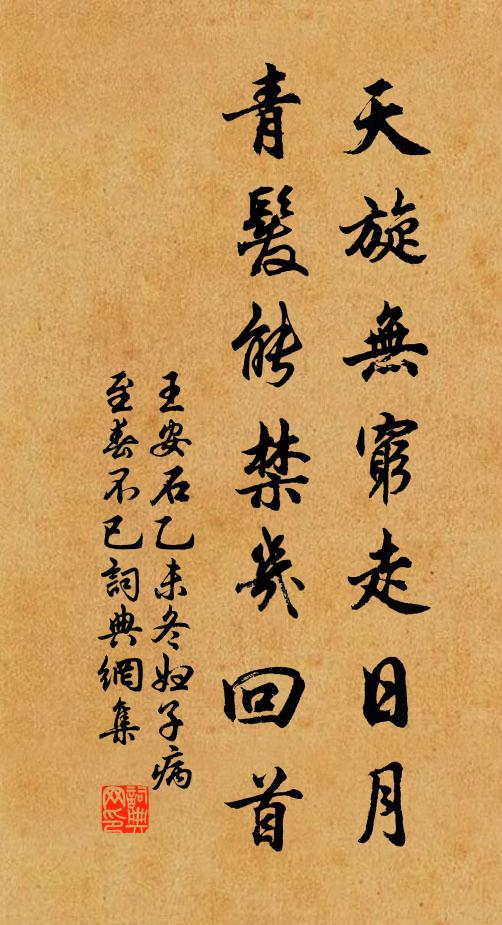 天旋無窮走日月
青髮能禁幾回首
王安石乙未冬婦子病
至春不已詞典網集
詞典網印